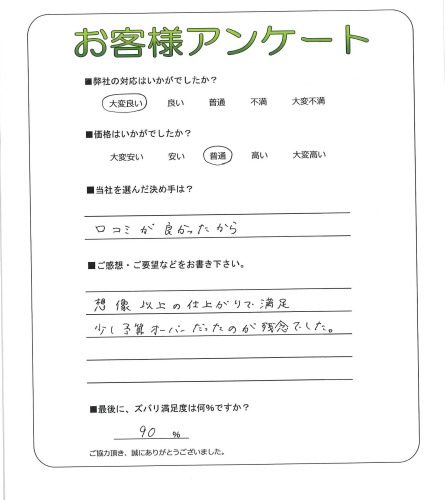 お客様アンケート
■弊社の対応はいかがでしたか?
大変良い 良い 普通 不満 大変不満
■価格はいかがでしたか?
大変安い 安い 普通 高い 大変高い
■当社を選んだ決め手は?
口コミが良かったから
■ご感想・ご要望などをお書き下さい。
想像以上の仕上がりで満足
少し予算オーバーだったのが残念でした。
■最後に、ズバリ満足度は何%ですか?
90 %
ご協力頂き、誠にありがとうございました。